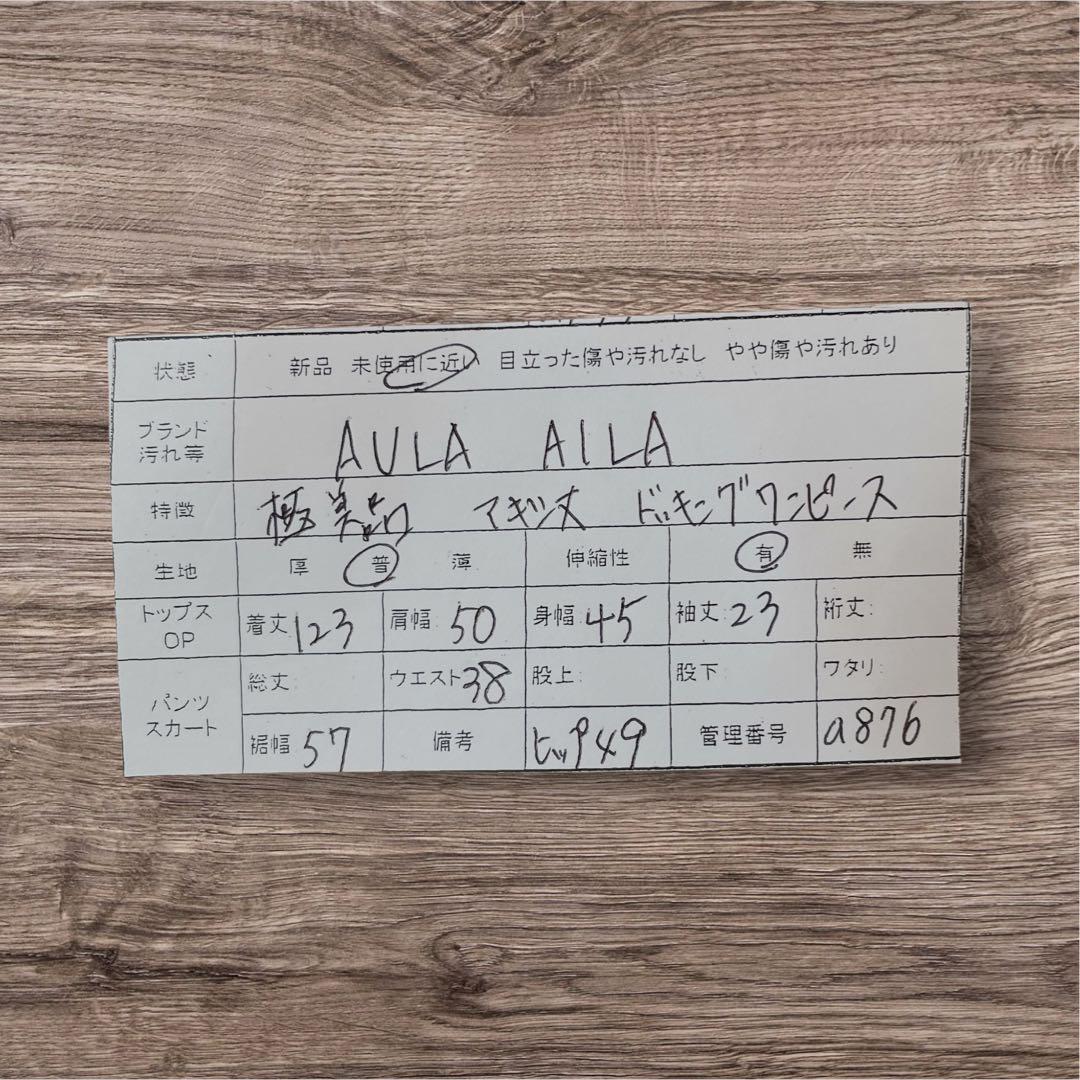 状態 新品 未使用に近い 目立った傷や汚れなし やや傷や汚れあり
ブランド
汚れ等 AULA AILA
特徴 極美品 マギシ丈 ドッキングワンピース
生地 厚 普 薄 伸縮性 有 無
トップス
OP 着丈 123 肩幅: 50 身幅: 45 袖丈: 23 裄丈:
パンツ
スカート 総丈: ウエスト 38 股上: 股下: ワタリ:
裾幅 57 備考 ヒップ49 管理番号 a876